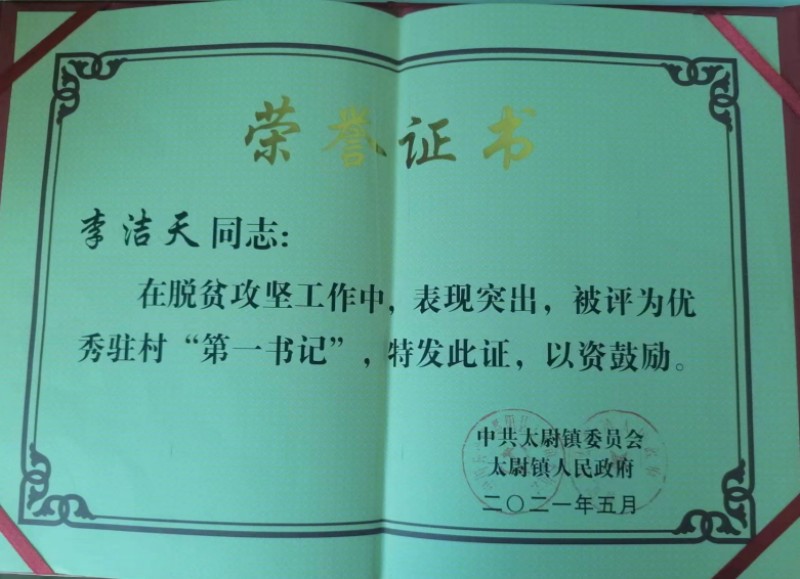 荣誉证书
李洁天同志：
在脱贫攻坚工作中，表现突出，被评为优
秀驻村“第一书记”，特发此证，以资鼓励。
中共太尉镇委员会
太尉镇人民政府
二〇二一年五月